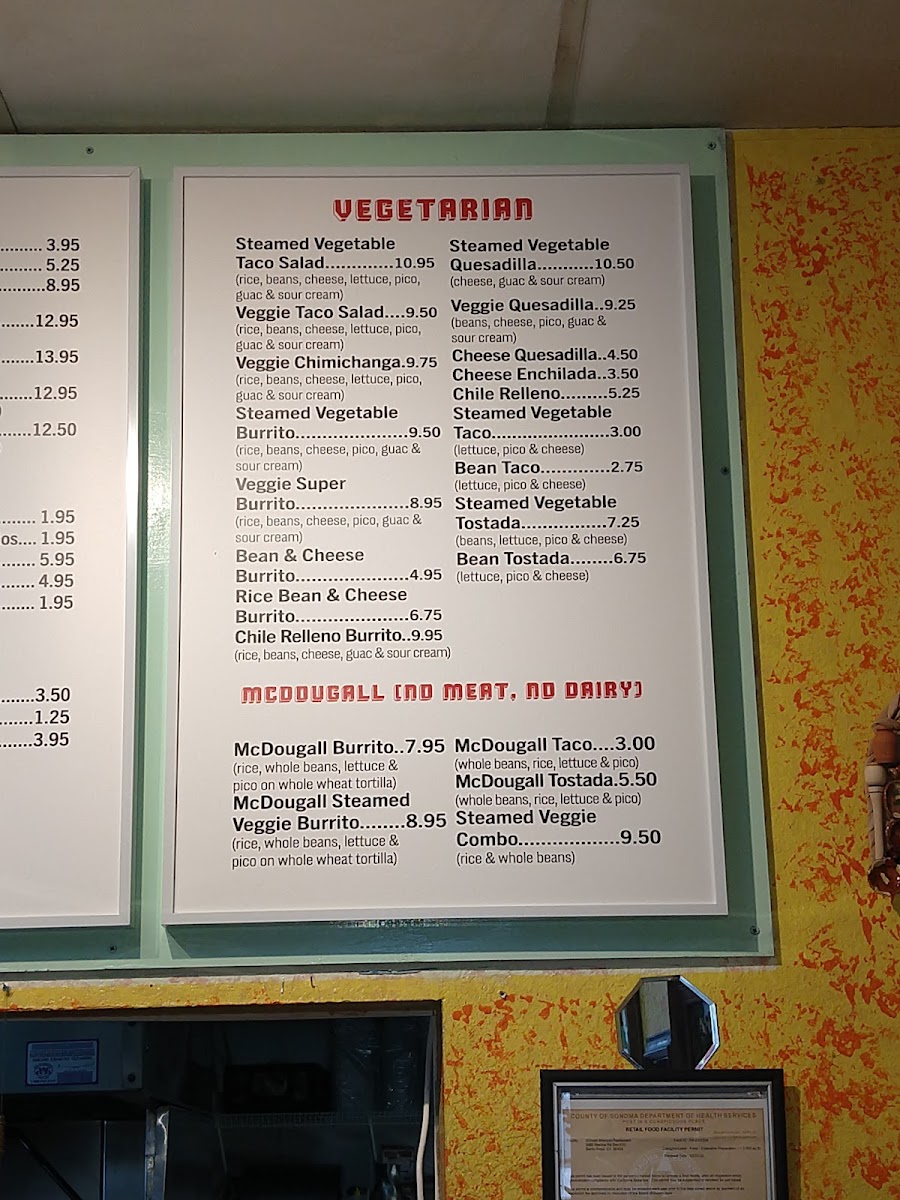 .......... 3.95
.......... 5.25
..........8.95
.......12.95
.......13.95
.......12.95
.......12.50
........ 1.95
os.... 1.95
........ 5.95
........ 4.95
........ 1.95
.......3.50
.......1.25
.......3.95
VEGETARIAN
Steamed Vegetable
Taco Salad.............10.95
(rice, beans, cheese, lettuce, pico,
guac & sour cream)
Veggie Taco Salad....9.50
(rice, beans, cheese, lettuce, pico,
guac & sour cream)
Veggie Chimichanga.9.75
(rice, beans, cheese, lettuce, pico,
guac & sour cream)
Steamed Vegetable
Burrito.....................9.50
(rice, beans, cheese, pico, guac &
sour cream)
Veggie Super
Burrito.....................8.95
(rice, beans, cheese, pico, guac &
sour cream)
Bean & Cheese
Burrito.....................4.95
Rice Bean & Cheese
Burrito.....................6.75
Chile Relleno Burrito..9.95
(rice, beans, cheese, guac & sour cream)
Steamed Vegetable
Quesadilla...........10.50
(cheese, guac & sour cream)
Veggie Quesadilla..9.25
(beans, cheese, pico, guac &
sour cream)
Cheese Quesadilla..4.50
Cheese Enchilada..3.50
Chile Relleno.........5.25
Steamed Vegetable
Taco......................3.00
(lettuce, pico & cheese)
Bean Taco.............2.75
(lettuce, pico & cheese)
Steamed Vegetable
Tostada................7.25
(beans, lettuce, pico & cheese)
Bean Tostada........6.75
(lettuce, pico & cheese)
MCDOUGALL (NO MEAT, NO DAIRY)
McDougall Burrito..7.95
(rice, whole beans, lettuce &
pico on whole wheat tortilla)
McDougall Steamed
Veggie Burrito........8.95
(rice, whole beans, lettuce &
pico on whole wheat tortilla)
McDougall Taco....3.00
(whole beans, rice, lettuce & pico)
McDougall Tostada.5.50
(whole beans, rice, lettuce & pico)
Steamed Veggie
Combo...................9.50
(rice & whole beans)
COUNTY OF SONOMA DEPARTMENT OF HEALTH SERVICES
POST IN A CONSPICUOUS PLACE
RETAIL FOOD FACILITY PERMIT